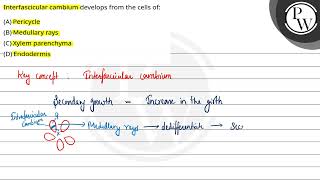 Interfascicular cambium develops from the cells of:
(A) Pericycle
(B) Medullary rays
(C) Xylem parenchyma
(D) Endodermis
PW
Key concept : Interfascicular cambium
Secondary growth – Increase in the girth
Intrafascicular
cambium
Medullary rays → dedifferentiate → Sec